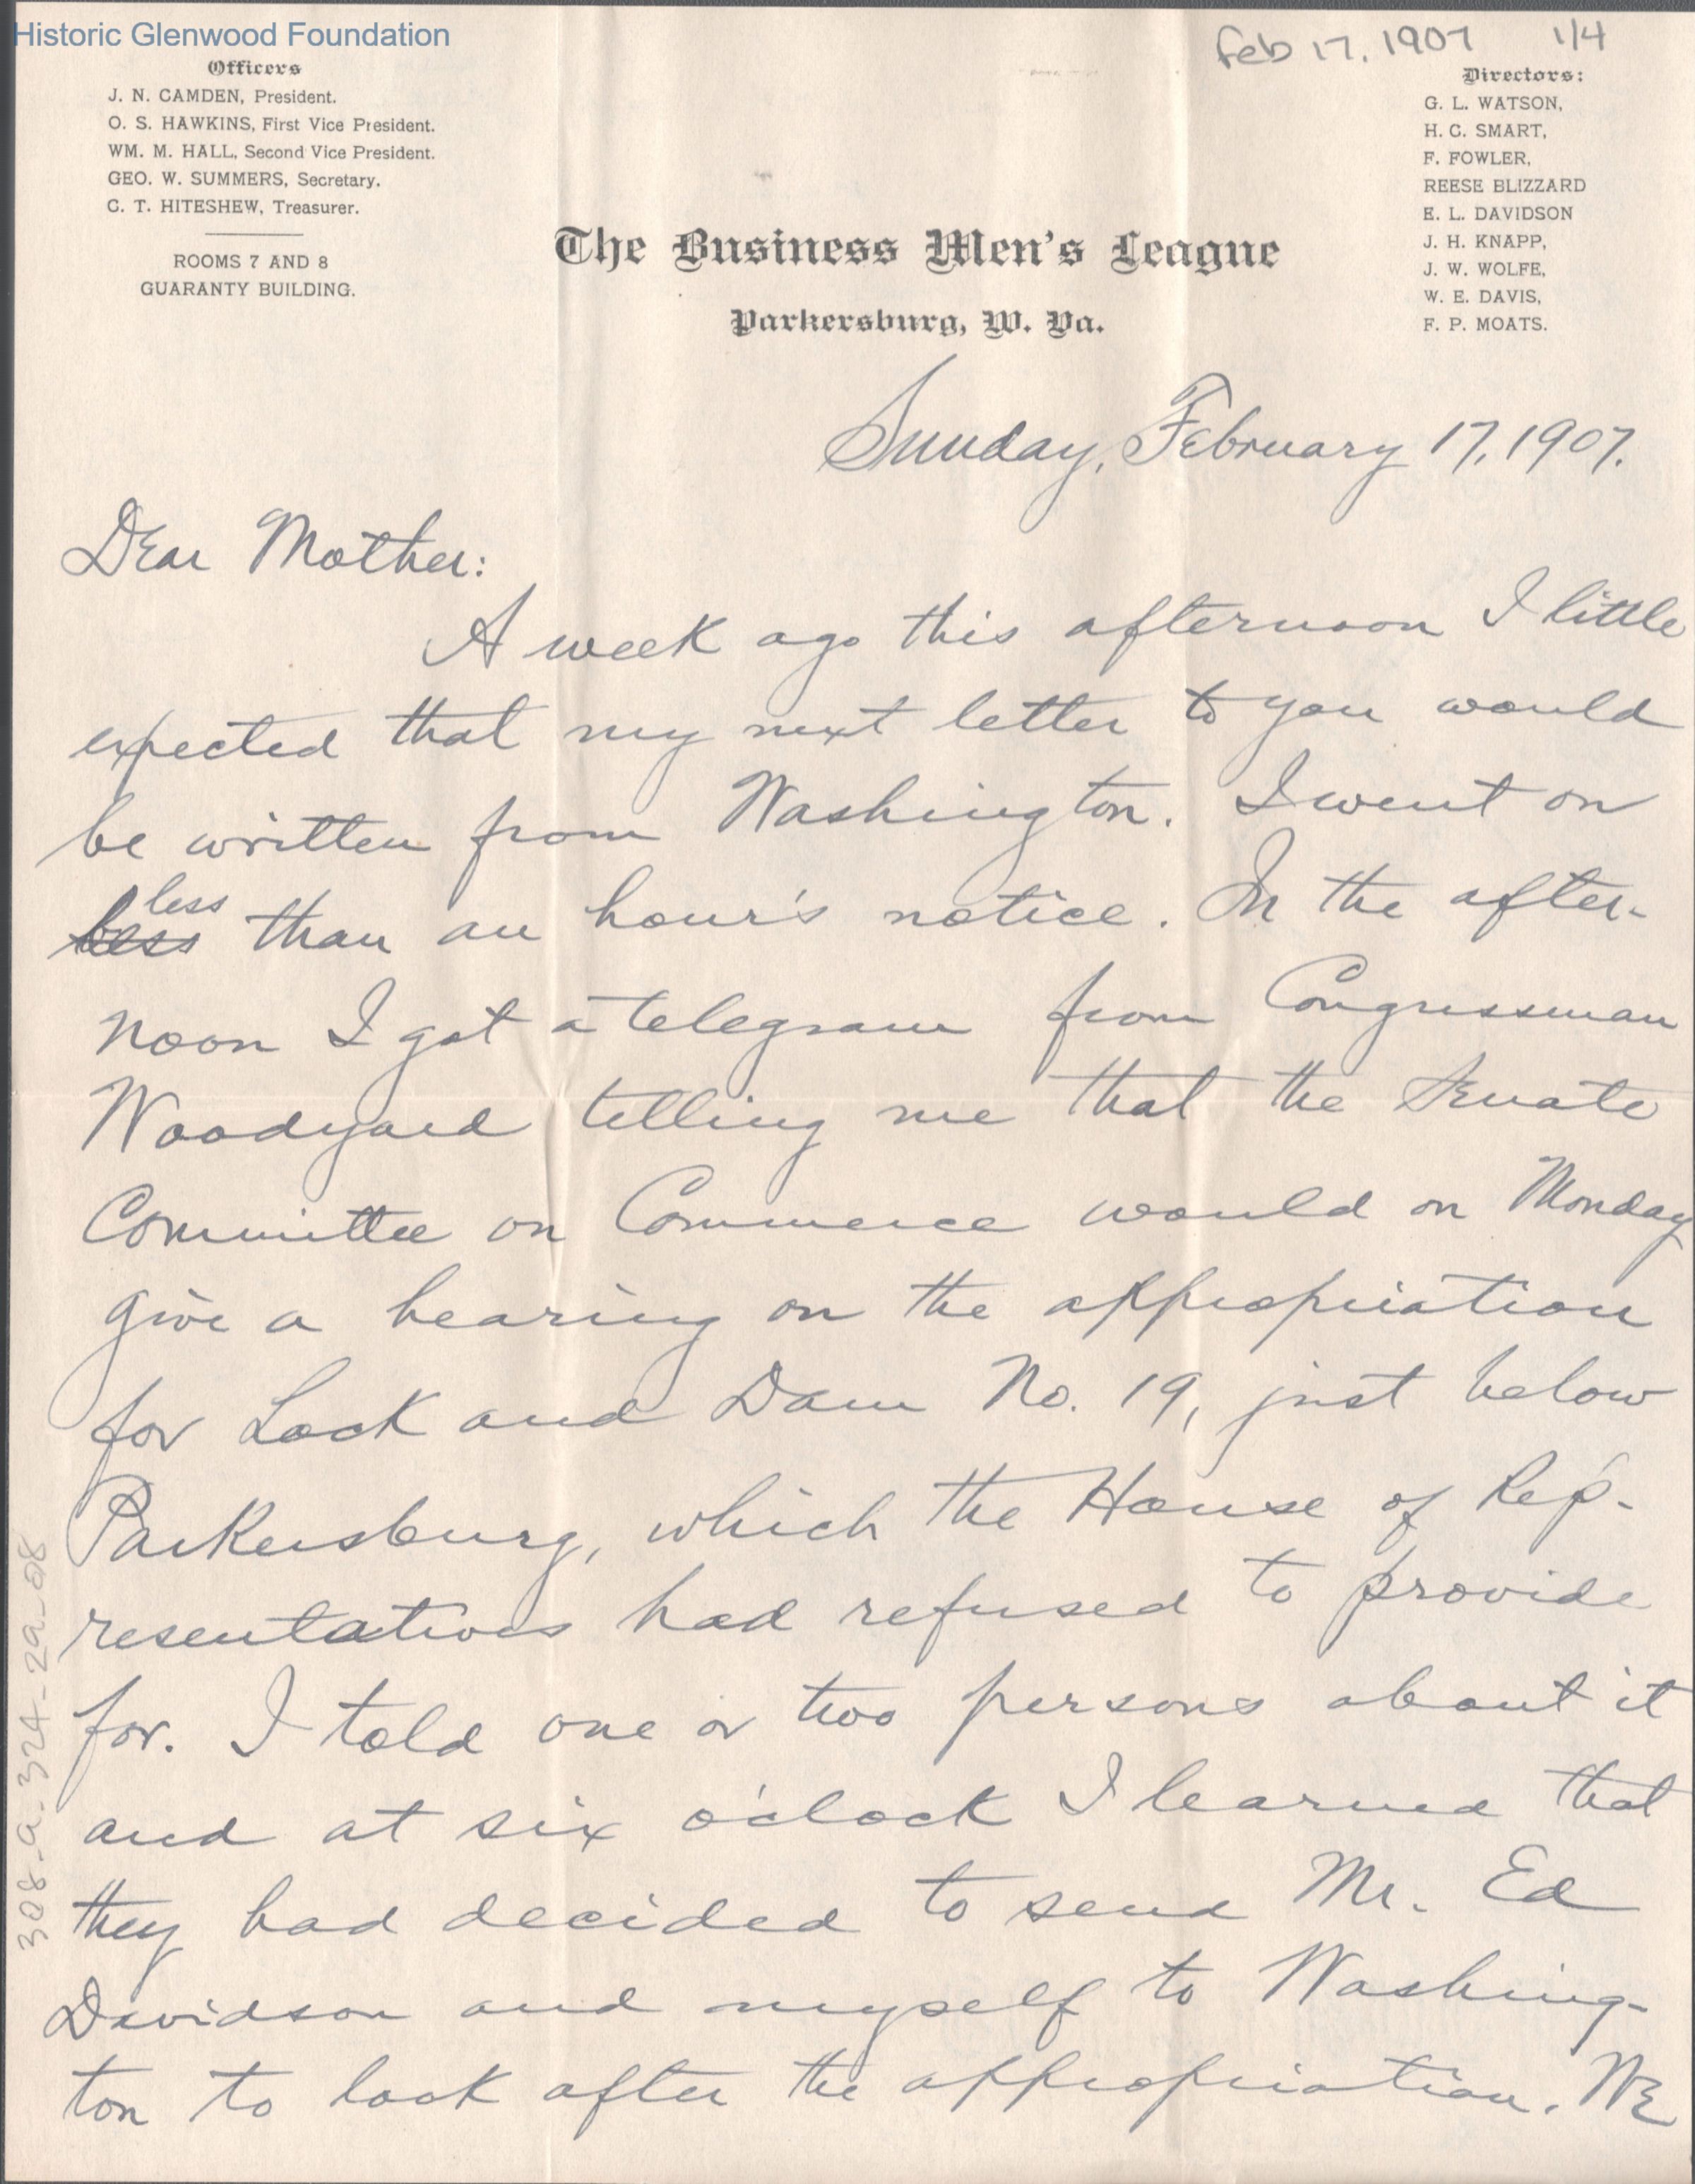 Historic Glenwood Foundation
Feb 17, 1907 1/4
Officers
J. N. CAMDEN, President.
O. S. HAWKINS, First Vice President.
WM. M. HALL, Second Vice President.
GEO. W. SUMMERS, Secretary.
C. T. HITESHEW, Treasurer.
ROOMS 7 AND 8
GUARANTY BUILDING.
Directors:
G. L. WATSON,
H. C. SMART,
F. FOWLER,
REESE BLIZZARD
E. L. DAVIDSON
J. H. KNAPP,
J. W. WOLFE,
W. E. DAVIS,
F. P. MOATS.
The Business Men's League
Parkersburg, W. Va.
Sunday, February 17, 1907.
Dear Mother:
A week ago this afternoon I little
expected that my next letter to you would
be written from Washington. I went on
less
than an hour's notice. In the after-
noon I got a telegram from Congressman
Woodyard telling me that the Senate
Committee on Commerce would on Monday
give a hearing on the appropriation
for Lock and Dam No. 19, just below
Parkersburg, which the House of Rep-
resentatives had refused to provide
for. I told one or two persons about it
and at six o'clock I learned that
they had decided to send Mr. Ed
Davidson and myself to Washing-
ton to look after the appropriation. We
308-a.324-2a-08